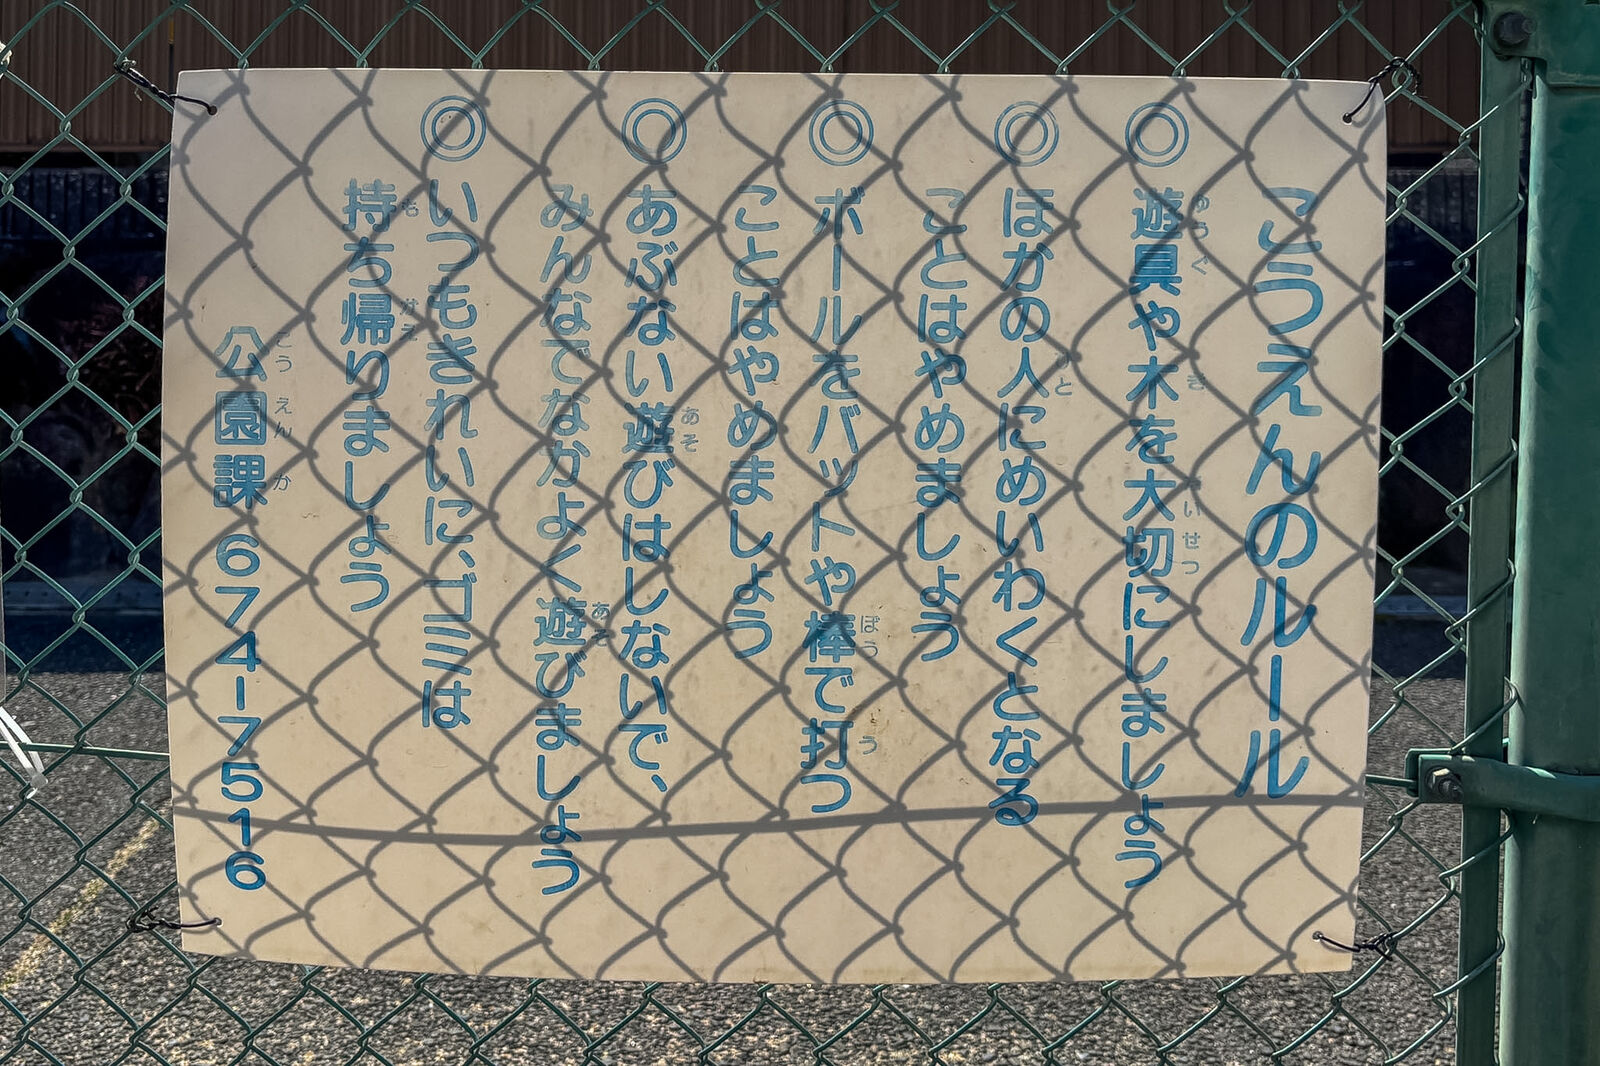 こうえんのルール
◎遊具や木を大切にしましょう
◎ほかの人にめいわくとなる
ことはやめましょう
◎ボールをバットや棒で打つ
ことはやめましょう
◎あぶない遊びはしないで、
みんなでなかよく遊びましょう
◎いつもきれいに、ゴミは
持ち帰りましょう
公園課 674-7516